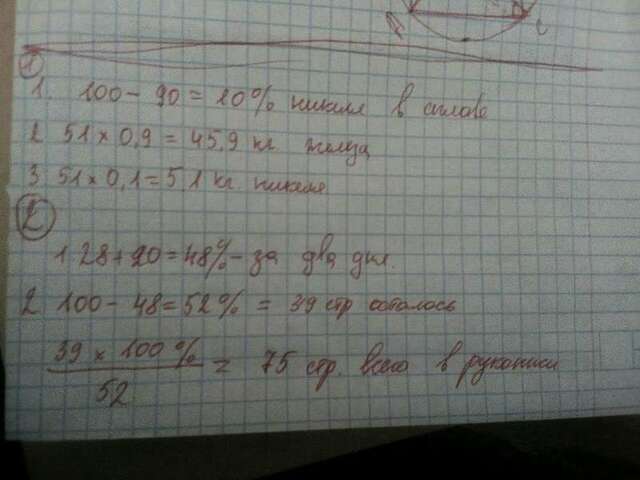 A C
1
1. 100 - 90 = 10% никеля в сплаве
2 51 x 0,9 = 45,9 кг железа
3 51 x 0,1 = 5,1 кг никеля
2
1 28 + 20 = 48% - за два дня.
2 100 - 48 = 52% = 39 стр осталось
39 x 100% / 52 = 75 стр. всего в рукописи